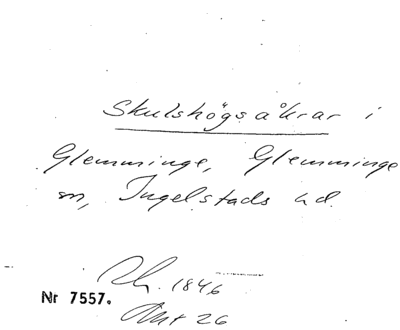 Skulshögsåkrar i
Glemminge, Glemminge
sn, Ingelstads hd.
Rh. 1846
Nr 7557.
Akt 26